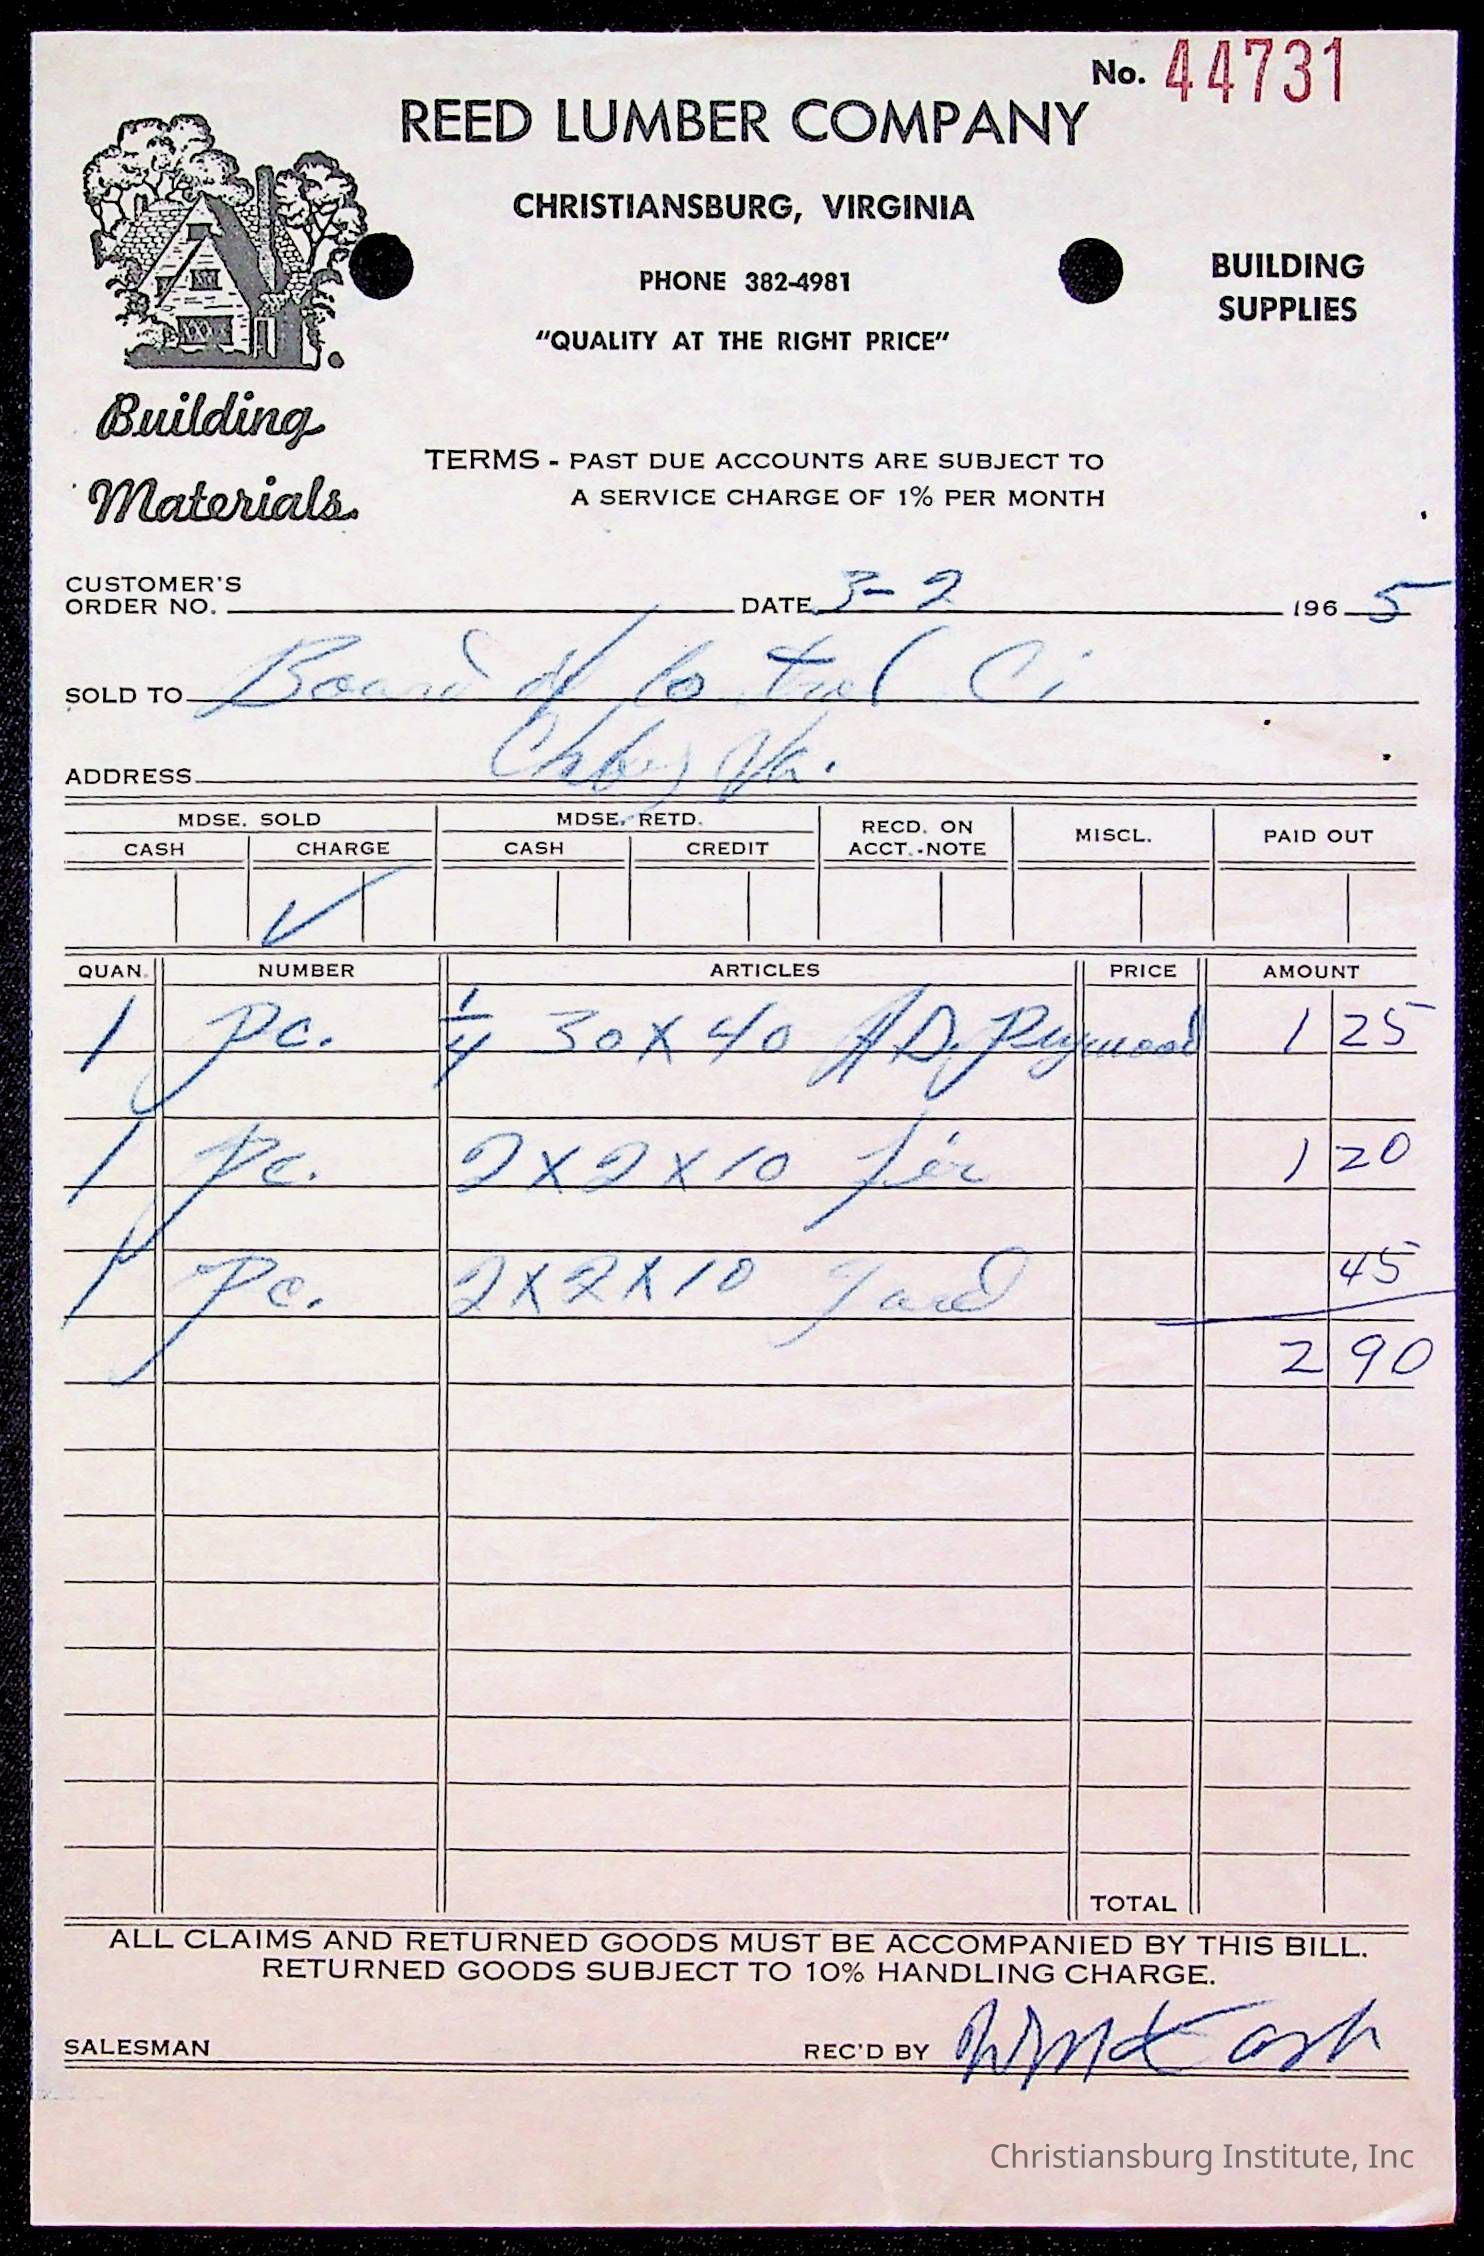 No. 44731
REED LUMBER COMPANY
CHRISTIANSBURG, VIRGINIA
PHONE 382-4981
BUILDING
SUPPLIES
"QUALITY AT THE RIGHT PRICE"
Building
Materials
TERMS - PAST DUE ACCOUNTS ARE SUBJECT TO
A SERVICE CHARGE OF 1% PER MONTH
CUSTOMER'S
ORDER NO. DATE 3-2 1965
SOLD TO Board of Control Ci
ADDRESS Chbg Va.
MDSE. SOLD MDSE. RETD. RECD. ON ACCT.-NOTE MISCL. PAID OUT
CASH CHARGE CASH CREDIT
✓
QUAN. NUMBER ARTICLES PRICE AMOUNT
1 pc. 1/4 30 X 40 A D. Plywood 1 25
1 pc. 2 X 2 X 10 fir 1 20
1 pc. 2 X 2 X 10 45
2 90
TOTAL
ALL CLAIMS AND RETURNED GOODS MUST BE ACCOMPANIED BY THIS BILL.
RETURNED GOODS SUBJECT TO 10% HANDLING CHARGE.
SALESMAN REC'D BY
Christiansburg Institute, Inc